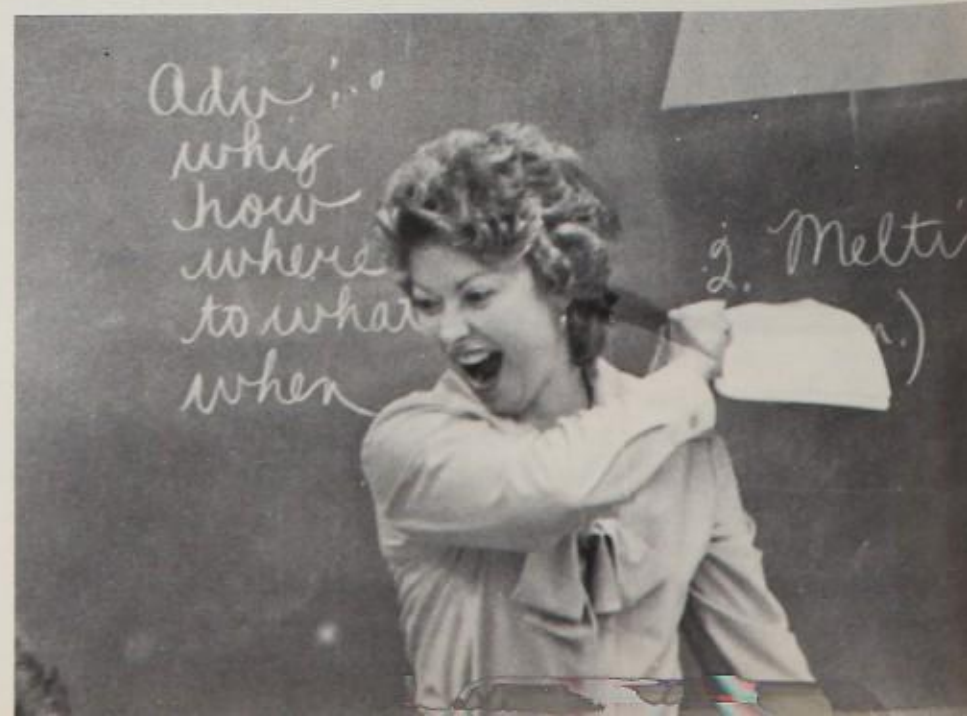 Adv:
why
how
where
to what
when
g. Melti
.)